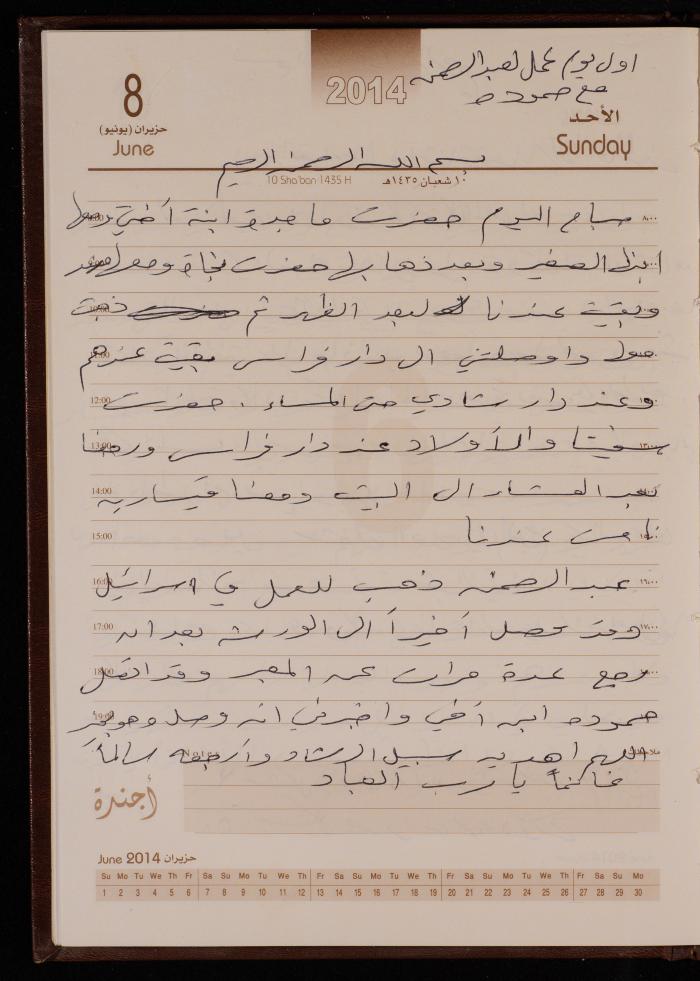 اول يوم عمل لعبد الرحمن
مع حموده
2014
8
حزيران (يونيو)
June
الأحد
Sunday
بسم الله الرحمن الرحيم
10 Sha'ban 1435 H
١٠ شعبان ١٤٣٥هـ
صباح اليوم حضرت ماجدة ابنة أختي ومعها
ابنها الصغير وبعد ذهابها حضرت نجاة ومعها
وبقيت عندنا لبعد الظهر ثم ذهبت
اوصلتني الى دار فراس بقيت عندهم
وعند دار شادي حتى المساء . حضرت
والأولاد عند دار فراس ورجعنا
بعد العشاء الى البيت ومعنا قيساريه
نامت عندنا
عبد الرحمن ذهب للعمل في اسرائيل
وقد حصل أخيراً الى الورشه بعد انه
رجع عدة مرات عن المعبر وقد اتصل
حموده ابن أخي واخبرني انه وصل وهو بخير
اللهم اهديه سبيل الرشاد وأرجعه سالماً
غانماً يا رب العباد
12:00
13:00
14:00
15:00
16:00
17:00
18:00
19:00
Notes
أجندة
June 2014 حزيران
Su Mo Tu We Th Fr Sa Su Mo Tu We Th Fr Sa Su Mo Tu We Th Fr Sa Su Mo Tu We Th Fr Sa Su Mo
1 2 3 4 5 6 7 8 9 10 11 12 13 14 15 16 17 18 19 20 21 22 23 24 25 26 27 28 29 30